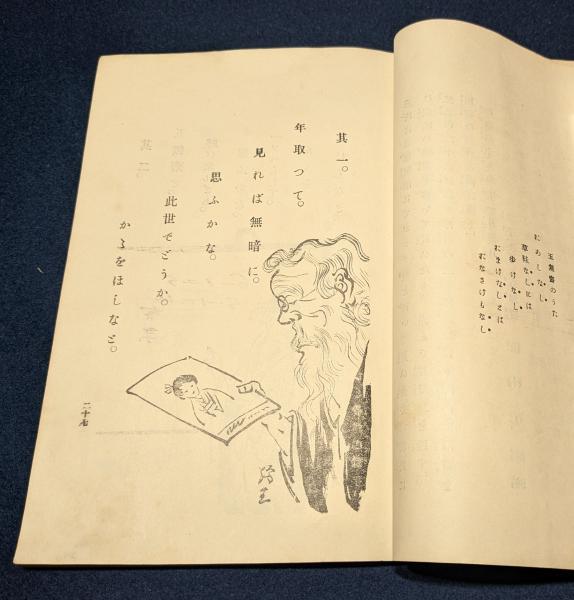 玉無齋のうた
におしなし
草鞋なしには
歩けなし
おまけなしでは
おなさけもなし
其一。
年取つて。
見れば無暗に。
思ふかな。
此世でどうか。
かゝをほしなと。
二十七